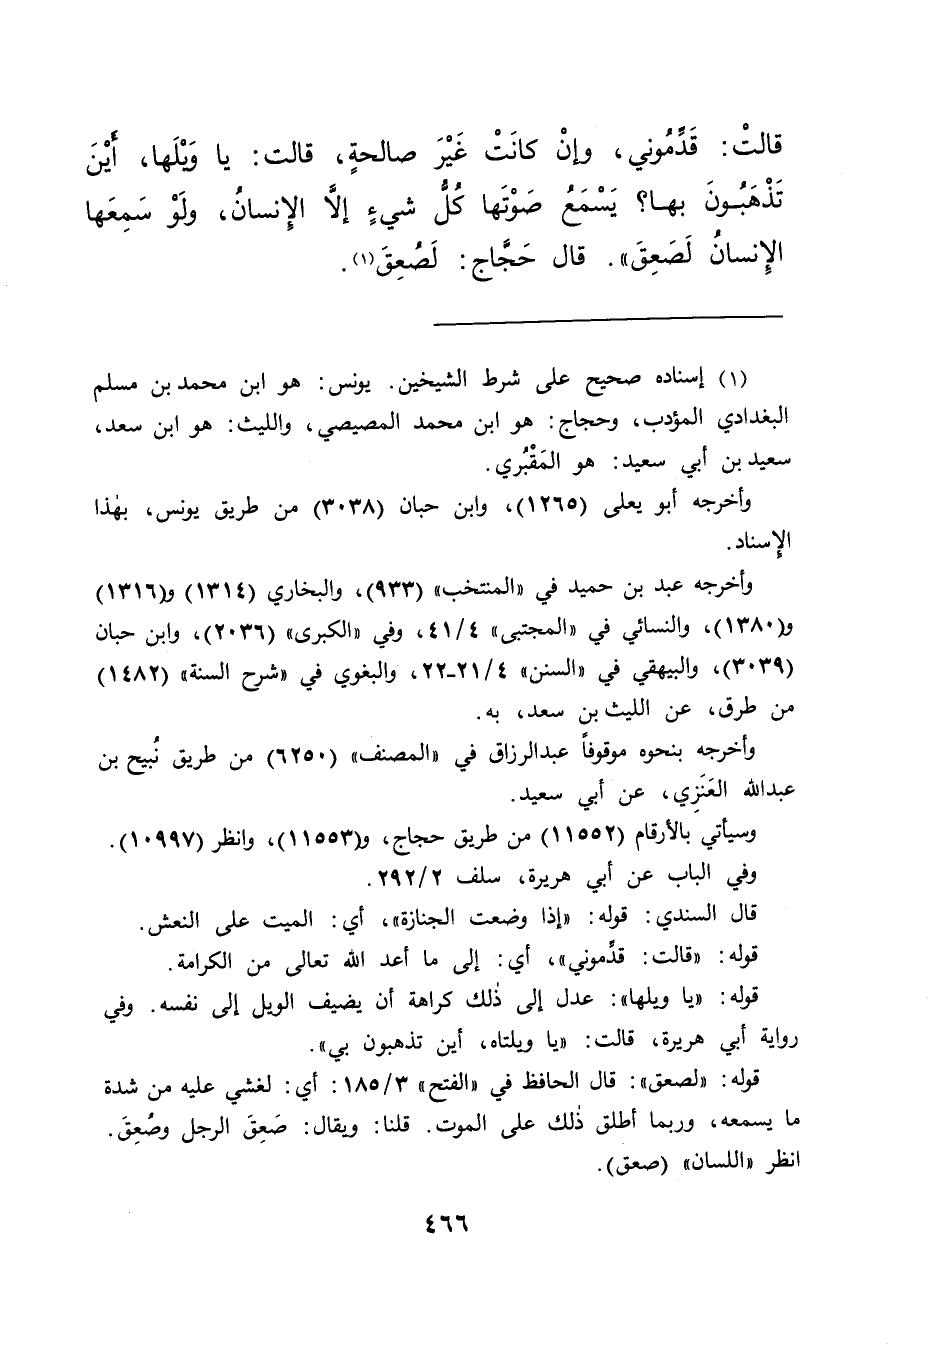 قالتْ: قَدِّمُوني، وإنْ كانَتْ غَيْرَ صالحةٍ، قالت: يا وَيْلَها، أَيْنَ
تَذْهَبُونَ بها؟ يَسْمَعُ صَوْتَها كُلُّ شيءٍ إلَّا الإِنسانُ، ولَوْ سَمِعَها
الإِنسانُ لَصَعِقَ». قال حَجَّاج: لَصُعِقَ(١).
(١) إسناده صحيح على شرط الشيخين. يونس: هو ابن محمد بن مسلم
البغدادي المؤدب، وحجاج: هو ابن محمد المصيصي، والليث: هو ابن سعد،
سعيد بن أبي سعيد: هو المَقْبُري.
وأخرجه أبو يعلى (١٢٦٥)، وابن حبان (٣٠٣٨) من طريق يونس، بهٰذا
الإِسناد.
وأخرجه عبد بن حميد في «المنتخب» (٩٣٣)، والبخاري (١٣١٤) و(١٣١٦)
و(١٣٨٠)، والنسائي في «المجتبى» ٤١/٤، وفي «الكبرى» (٢٠٣٦)، وابن حبان
(٣٠٣٩)، والبيهقي في «السنن» ٢١/٤-٢٢، والبغوي في «شرح السنة» (١٤٨٢)
من طرق، عن الليث بن سعد، به.
وأخرجه بنحوه موقوفاً عبدالرزاق في «المصنف» (٦٢٥٠) من طريق نُبيح بن
عبدالله العَنَزِي، عن أبي سعيد.
وسيأتي بالأرقام (١١٥٥٢) من طريق حجاج، و(١١٥٥٣)، وانظر (١٠٩٩٧).
وفي الباب عن أبي هريرة، سلف ٢٩٢/٢.
قال السندي: قوله: «إذا وضعت الجنازة»، أي: الميت على النعش.
قوله: «قالت: قدِّموني»، أي: إلى ما أعد الله تعالى من الكرامة.
قوله: «يا ويلها»: عدل إلى ذٰلك كراهة أن يضيف الويل إلى نفسه. وفي
رواية أبي هريرة، قالت: «يا ويلتاه، أين تذهبون بي».
قوله: «لصعق»: قال الحافظ في «الفتح» ١٨٥/٣: أي: لغشي عليه من شدة
ما يسمعه، وربما أطلق ذٰلك على الموت. قلنا: ويقال: صَعِقَ الرجل وصُعِقَ.
انظر «اللسان» (صعق).
٤٦٦